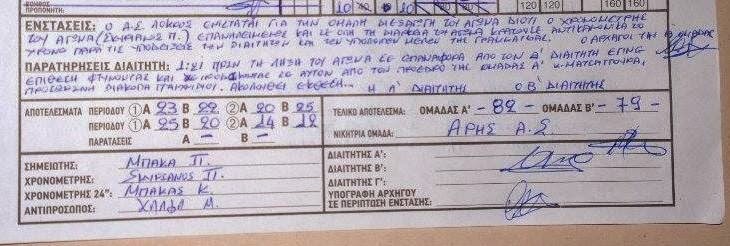 ΠΡΟΠΟΝΗΤΗΣ: 120 120 160 160
ΕΝΣΤΑΣΕΙΣ: Ο Α.Σ. ΛΟΚΡΟΣ ΕΝΙΣΤΑΤΑΙ ΓΙΑ ΤΗΝ ΟΜΑΛΗ ΔΙΕΞΑΓΩΓΗ ΤΟΥ ΑΓΩΝΑ ΔΙΟΤΙ Ο ΧΡΟΝΟΜΕΤΡΗΣ
ΤΟΥ ΑΓΩΝΑ Π.) ΕΠΑΝΕΙΛΗΜΜΕΝΩΣ ΚΑΙ ΣΕ ΟΛΗ ΤΗ ΔΙΑΡΚΕΙΑ ΤΟΥ ΑΓΩΝΑ ΚΡΑΤΟΥΣΕ
ΧΡΟΝΟ ΠΑΡΑ ΤΙΣ ΥΠΟΔΕΙΞΕΙΣ ΤΩΝ ΔΙΑΙΤΗΤΩΝ ΚΑΙ ΤΩΝ ΥΠΟΛΟΙΠΩΝ ΜΕΛΩΝ ΤΗΣ ΓΡΑΜΜΑΤΕΙΑΣ. Ο ΑΡΧΗΓΟΣ ΤΗΣ
ΠΑΡΑΤΗΡΗΣΕΙΣ ΔΙΑΙΤΗΤΗ: ΠΡΙΝ ΤΗ ΛΗΞΗ ΤΟΥ ΑΓΩΝΑ ΣΕ ΕΠΑΝΑΦΟΡΑ ΑΠΟ ΤΟΝ Α' ΔΙΑΙΤΗΤΗ ΕΓΙΝΕ
ΕΠΙΘΕΣΗ ΦΤΥΝΟΝΤΑΣ ΚΑΙ ΣΕ ΑΥΤΟΝ ΑΠΟ ΤΟΝ ΠΡΟΕΔΡΟ ΤΗΣ ΟΜΑΔΑΣ Α' Κ. ΜΑΤΣΙΓΓΟΥΡΑ
ΠΡΟΣΩΡΙΝΗ ΔΙΑΚΟΠΗ ΑΚΟΛΟΥΘΕΙ ΕΚΘΕΣΗ... Η Α' ΔΙΑΙΤΗΤΗΣ Ο Β' ΔΙΑΙΤΗΤΗΣ
ΑΠΟΤΕΛΕΣΜΑΤΑ ΠΕΡΙΟΔΟΥ ① Α 23 Β 22 ② Α 20 Β 25
ΠΕΡΙΟΔΟΥ ① Α 25 Β 20 ② Α 14 Β 12
ΠΑΡΑΤΑΣΕΙΣ Α – Β –
ΤΕΛΙΚΟ ΑΠΟΤΕΛΕΣΜΑ: ΟΜΑΔΑΣ Α' - 82 - ΟΜΑΔΑΣ Β' - 79 -
ΝΙΚΗΤΡΙΑ ΟΜΑΔΑ: ΑΡΗΣ Α.Σ.
ΣΗΜΕΙΩΤΗΣ: ΜΠΑΚΑ Π.
ΧΡΟΝΟΜΕΤΡΗΣ: Π.
ΧΡΟΝΟΜΕΤΡΗΣ 24": ΜΠΑΚΑΣ Κ.
ΑΝΤΙΠΡΟΣΩΠΟΣ: ΧΑΛΒΑ Μ.
ΔΙΑΙΤΗΤΗΣ Α':
ΔΙΑΙΤΗΤΗΣ Β':
ΔΙΑΙΤΗΤΗΣ Γ':
ΥΠΟΓΡΑΦΗ ΑΡΧΗΓΟΥ
ΣΕ ΠΕΡΙΠΤΩΣΗ ΕΝΣΤΑΣΗΣ: